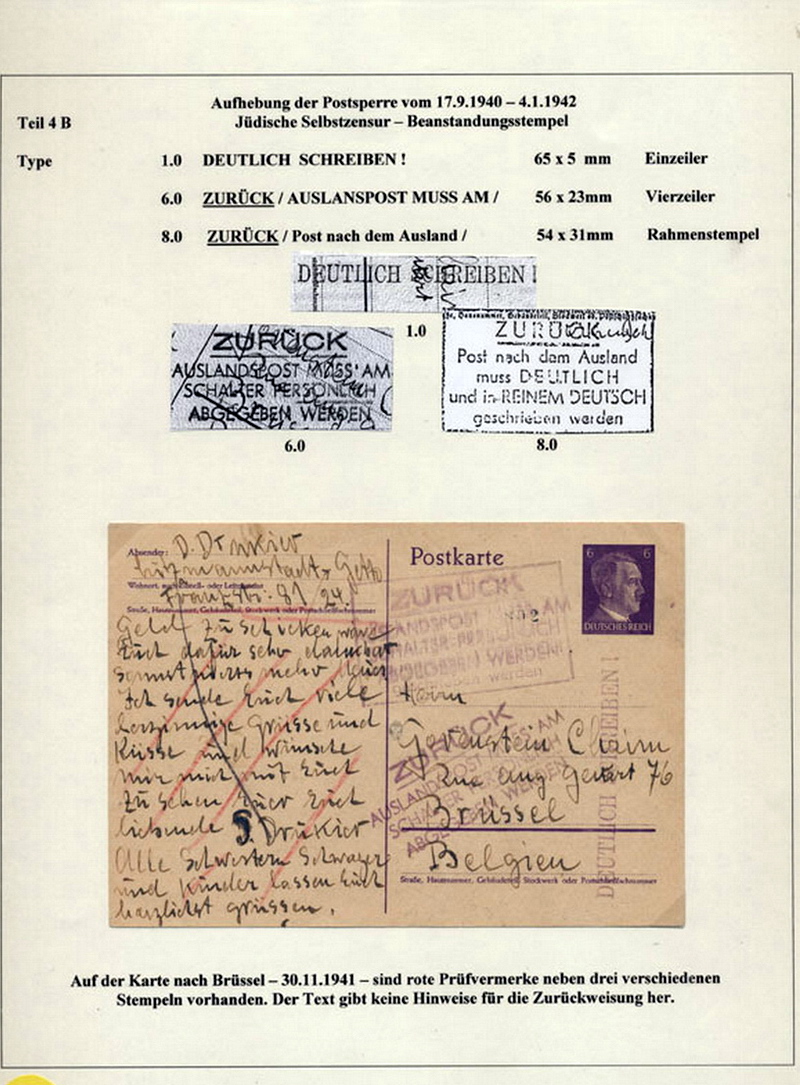 Aufhebung der Postsperre vom 17.9.1940 – 4.1.1942
Teil 4 B Jüdische Selbstzensur – Beanstandungsstempel
Type 1.0 DEUTLICH SCHREIBEN ! 65 x 5 mm Einzeiler
6.0 ZURÜCK / AUSLANSPOST MUSS AM / 56 x 23mm Vierzeiler
8.0 ZURÜCK / Post nach dem Ausland / 54 x 31mm Rahmenstempel
DEUTLICH SCHREIBEN !
1.0
ZURÜCK
AUSLANDSPOST MUSS AM
SCHALTER PERSÖNLICH
ABGEGEBEN WERDEN
6.0
ZURÜCK
Post nach dem Ausland
muss DEUTLICH
und in REINEM DEUTSCH
geschrieben werden
8.0
Absender: D. Drukier
Litzmannstadt, Getto
Wohnort, auch Zustell- oder Leitpostamt
Franzstr. 81/24.
Straße, Hausnummer, Gebäudeteil, Stockwerk oder Postschließfachnummer
Geld zu schicken wäre
Euch dafür sehr dankbar
sonst nichts mehr Neues
Ich sende Euch viele
herzinnige Grüsse und
Küsse und wünsche
mir mich mit Euch
zu sehen Euer Euch
liebende D. Drukier
Alle Schwestern Schwager
und Kinder lassen Euch
herzlichst grüssen.
Postkarte
6 6
DEUTSCHES REICH
ZURÜCK
AUSLANDSPOST MUSS AM
SCHALTER PERSÖNLICH
ABGEGEBEN WERDEN
Herrn
Chaim
Rue 76
Brüssel
Belgien
Straße, Hausnummer, Gebäudeteil, Stockwerk oder Postschließfachnummer
ZURÜCK
AUSLANDSPOST MUSS AM
SCHALTER PERSÖNLICH
ABGEGEBEN WERDEN
DEUTLICH SCHREIBEN !
Auf der Karte nach Brüssel – 30.11.1941 – sind rote Prüfvermerke neben drei verschiedenen
Stempeln vorhanden. Der Text gibt keine Hinweise für die Zurückweisung her.